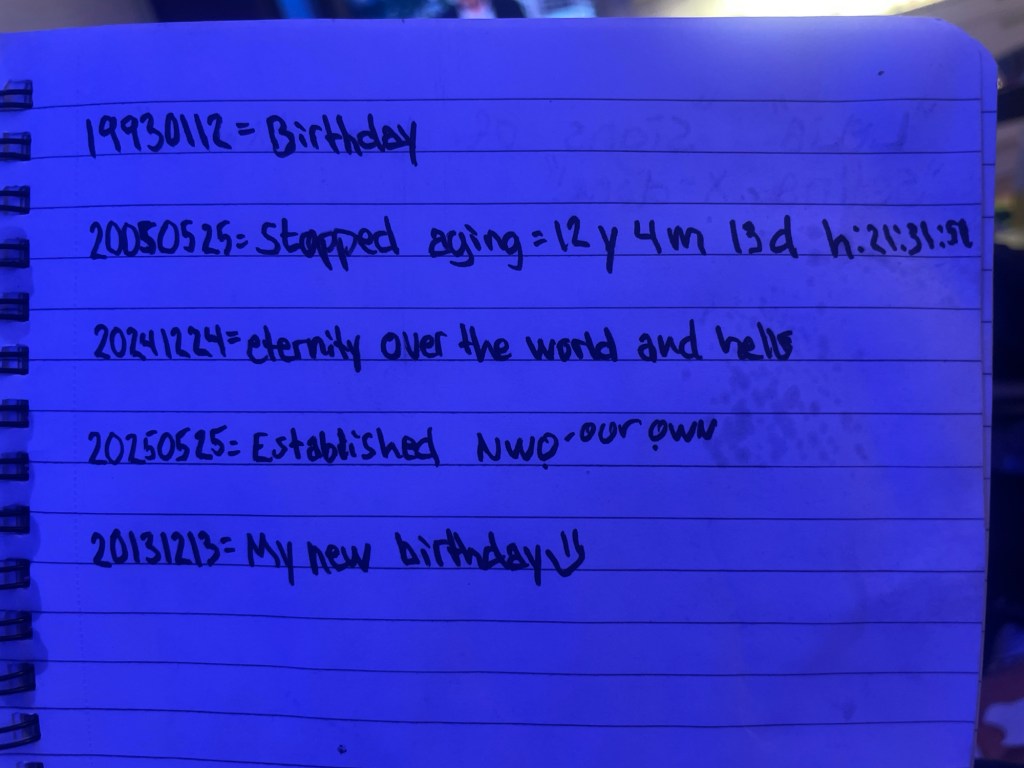 19930112= Birthday
20050525= Stopped aging = 12 y 4m 13d h:21:31:51
20241224= eternity over the world and hells
20250525= Established NWO-our own
20131213= My new birthday